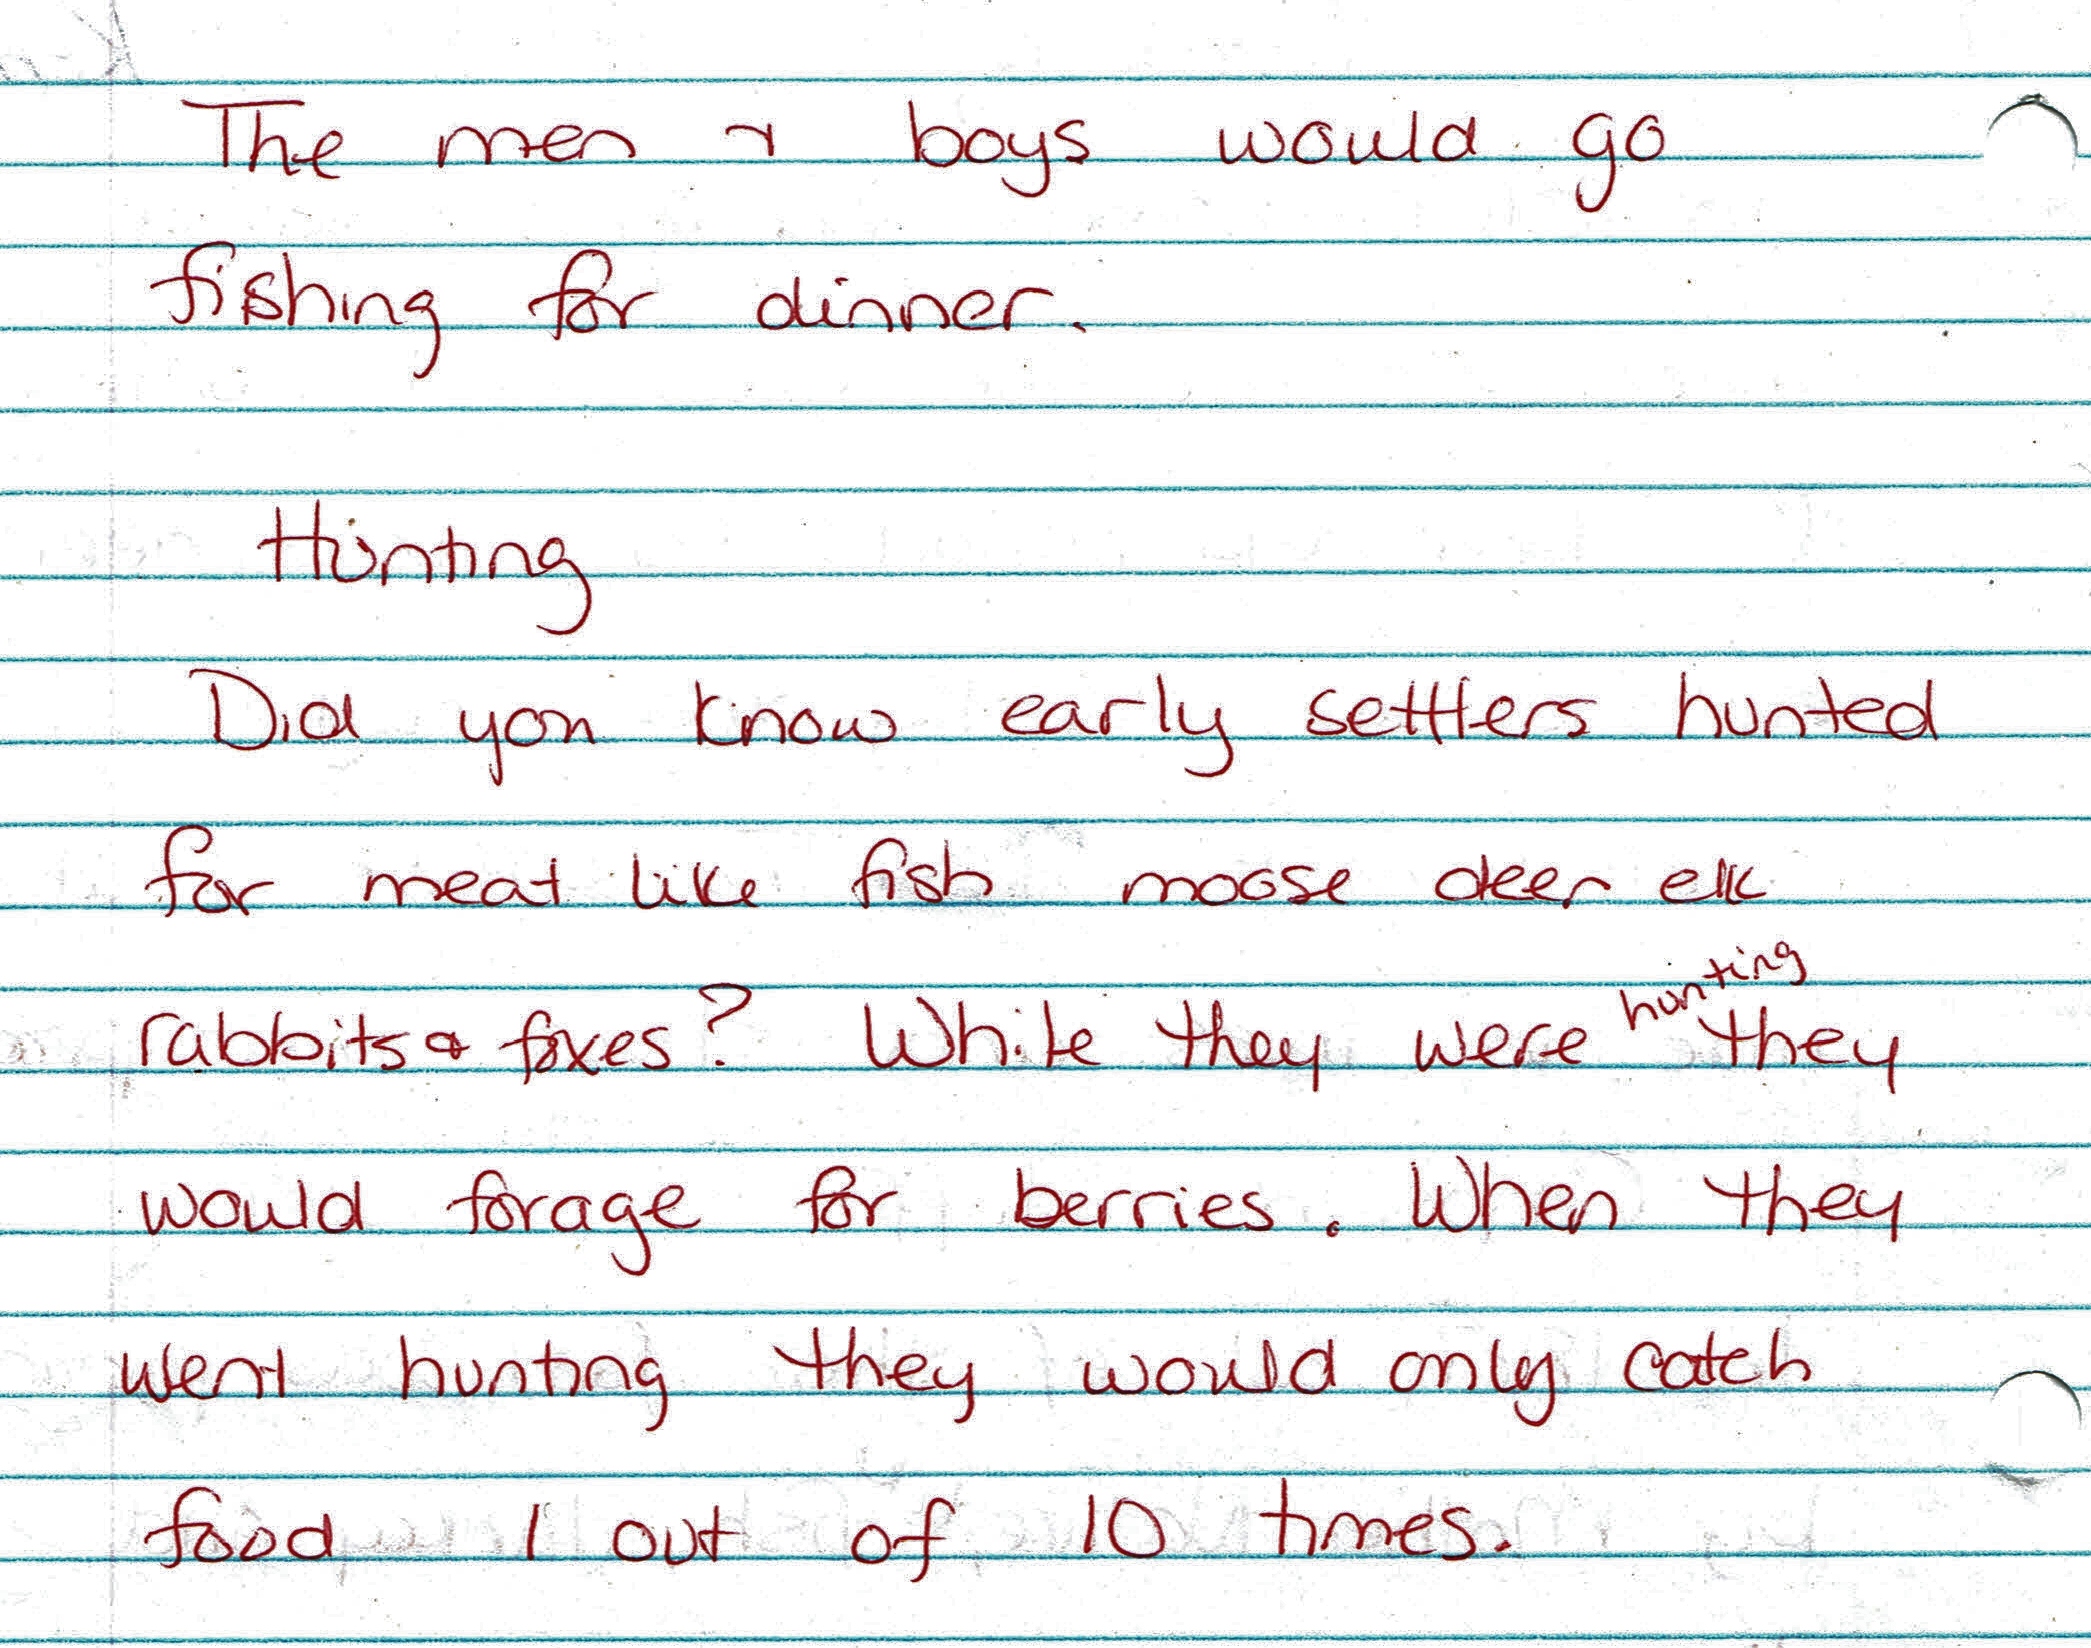 The men & boys would go
fishing for dinner.
Hunting
Did you know early settlers hunted
for meat like fish moose deer elk
rabbits & foxes? While they were hunting they
would forage for berries. When they
went hunting they would only catch
food 1 out of 10 times.